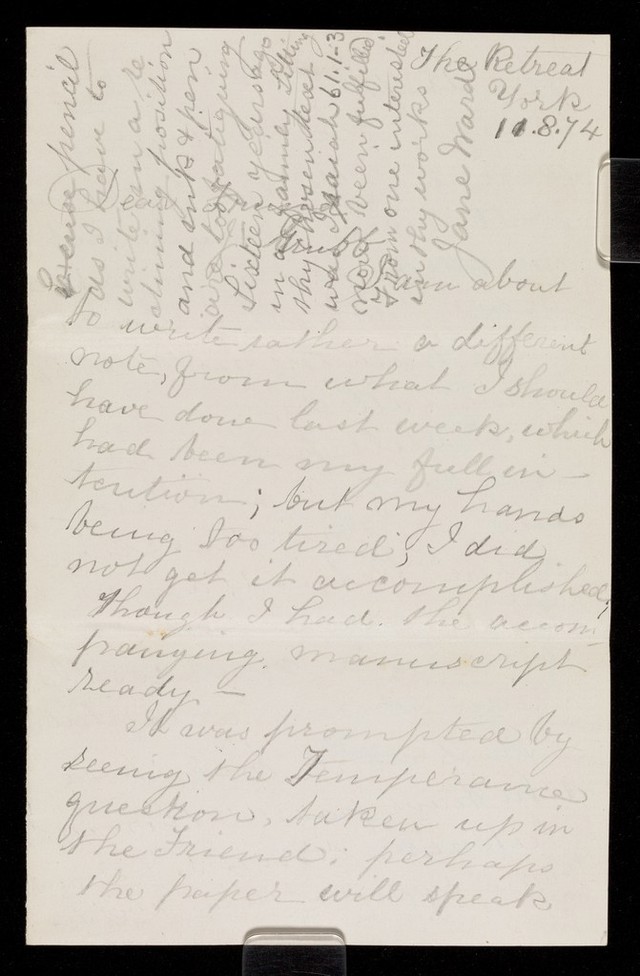 The Retreat
York
11.8.74
Dear
I am about
to write rather a different
note, from what I should
have done last week, which
had been my full in-
tention; but my hands
being too tired, I did
not get it accomplished,
though I had the accom-
panying manuscript
ready -
It was prompted by
seeing the Temperance
question, taken up in
the Friend: perhaps
the paper will speak
Excuse pencil
as I have to
write in a re
clining position
and ink & pen
are too fatiguing
Sixteen years ago
in a family sitting
thy chosen text
was Isaiah 61.1-3
not been fulfilled
From one interested
in thy works
Jane Ward